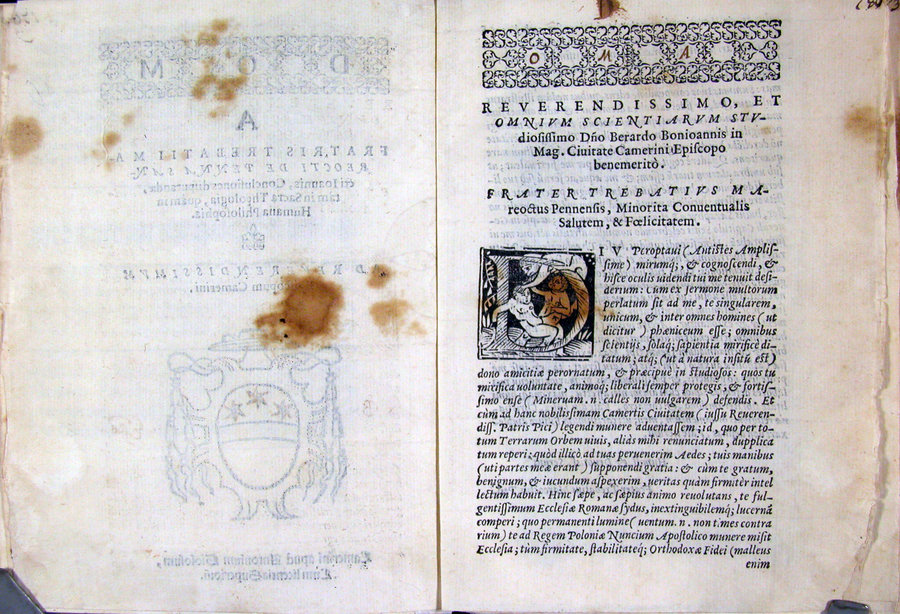 D O M
A
FRATRIS TREBATII MA-
REOCTI DE PENNA SAN.
cti Ioannis, Conclusiones disputandæ
tam Sacra Theologia, quàm in
Humana Philosophia.
AD REVERENDISSIMVM
Episcopum Camerini,
Camerini apud Antonium Gioiosum,
Cum licentia Superiorũ.
O M A
REVERENDISSIMO, ET
OMNIVM SCIENTIARVM STV-
diosissimo Dño Berardo Bonioannis in
Mag. Ciuitate Camerini Episcopo
benemeritò.
FRATER TREBATIVS MA-
reoctus Pennensis, Minorita Conuentualis
Salutem, & Fœlicitatem.
DIV Peroptaui (Antistes Amplis-
sime) mirumq;, & cognoscendi, &
hisce oculis uidendi tui me tenuit desi-
derium: Cùm ex sermone multorum
perlatum sit ad me, te singularem,
unicum, & inter omnes homines (ut
dicitur) phæniceum esse; omnibus
scientijs, solaq; sapientia mirificè di-
tatum; atq; (ut à natura insitũ est)
dono amicitiæ perornatum, & præcipuè in studiosos: quos tu
mirifica uoluntate, animoq; liberali semper protegis, & fortis-
simo ense (Mineruam .n. calles non uulgarem) defendis. Et
cùm ad hanc nobilissimam Camertis Ciuitatem (iussu Reueren-
diss. Patris Pici) legendi munere aduentassem; id, quo per to-
tum Terrarum Orbem uiuis, aliàs mihi renunciatum, dupplica
tum reperi: quòd illicò ad tuas peruenerim Aedes; tuis manibus
(uti partes meæ erant) supponendi gratia: & cùm te gratum,
benignum, & iucundum aspexerim, ueritas quàm firmitèr intel
lectum habuit. Hinc sæpe, ac sæpius animo reuolutans, te ful-
gentissimum Ecclesiæ Romanæ sydus, inextinguibilemq; lucernã
comperi; quo permanenti lumine (uentum .n. non times contra
rium) te ad Regem Poloniæ Nuncium Apostolico munere misit
Ecclesia; tùm firmitate, stabilitateq; Orthodoxæ Fidei (malleus
enim